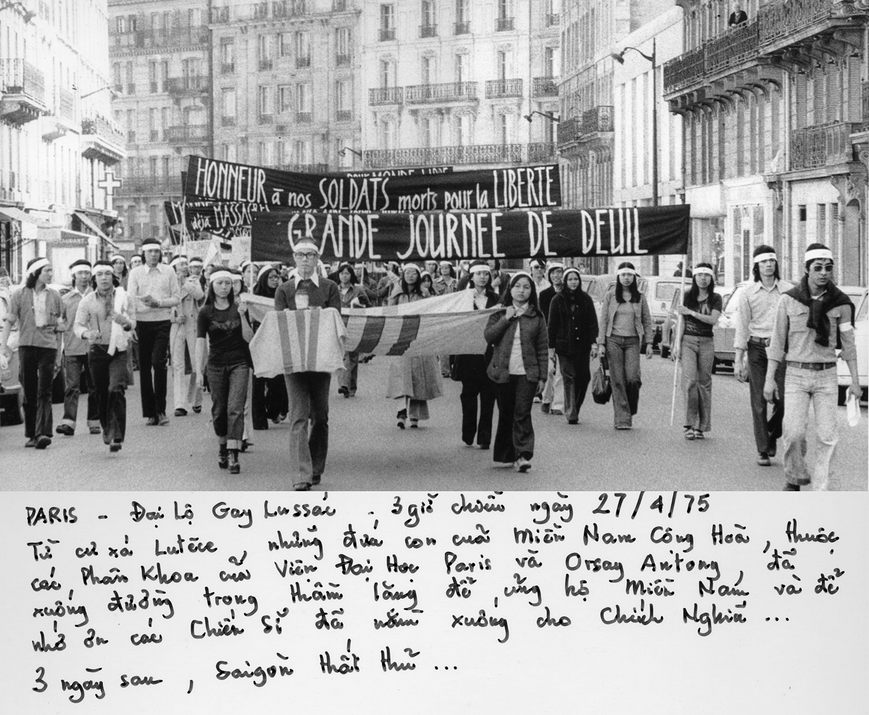 MONDE LIBRE
HONNEUR à nos SOLDATS morts pour la LIBERTE
déja MASSACR
GRANDE JOURNEE DE DEUIL
PARIS - Đại Lộ Gay Lussac . 3 giờ chiều ngày 27/4/75
Từ cư xá Lutèce, những đứa con của Miền Nam Cộng Hoà, thuộc
các Phân Khoa của Viện Đại Học Paris và Orsay Antony, đã
xuống đường trong thầm lặng để ủng hộ Miền Nam và để
nhớ ơn các Chiến Sĩ đã nằm xuống cho Chính Nghĩa ...
3 ngày sau, Saigon thất thủ ...